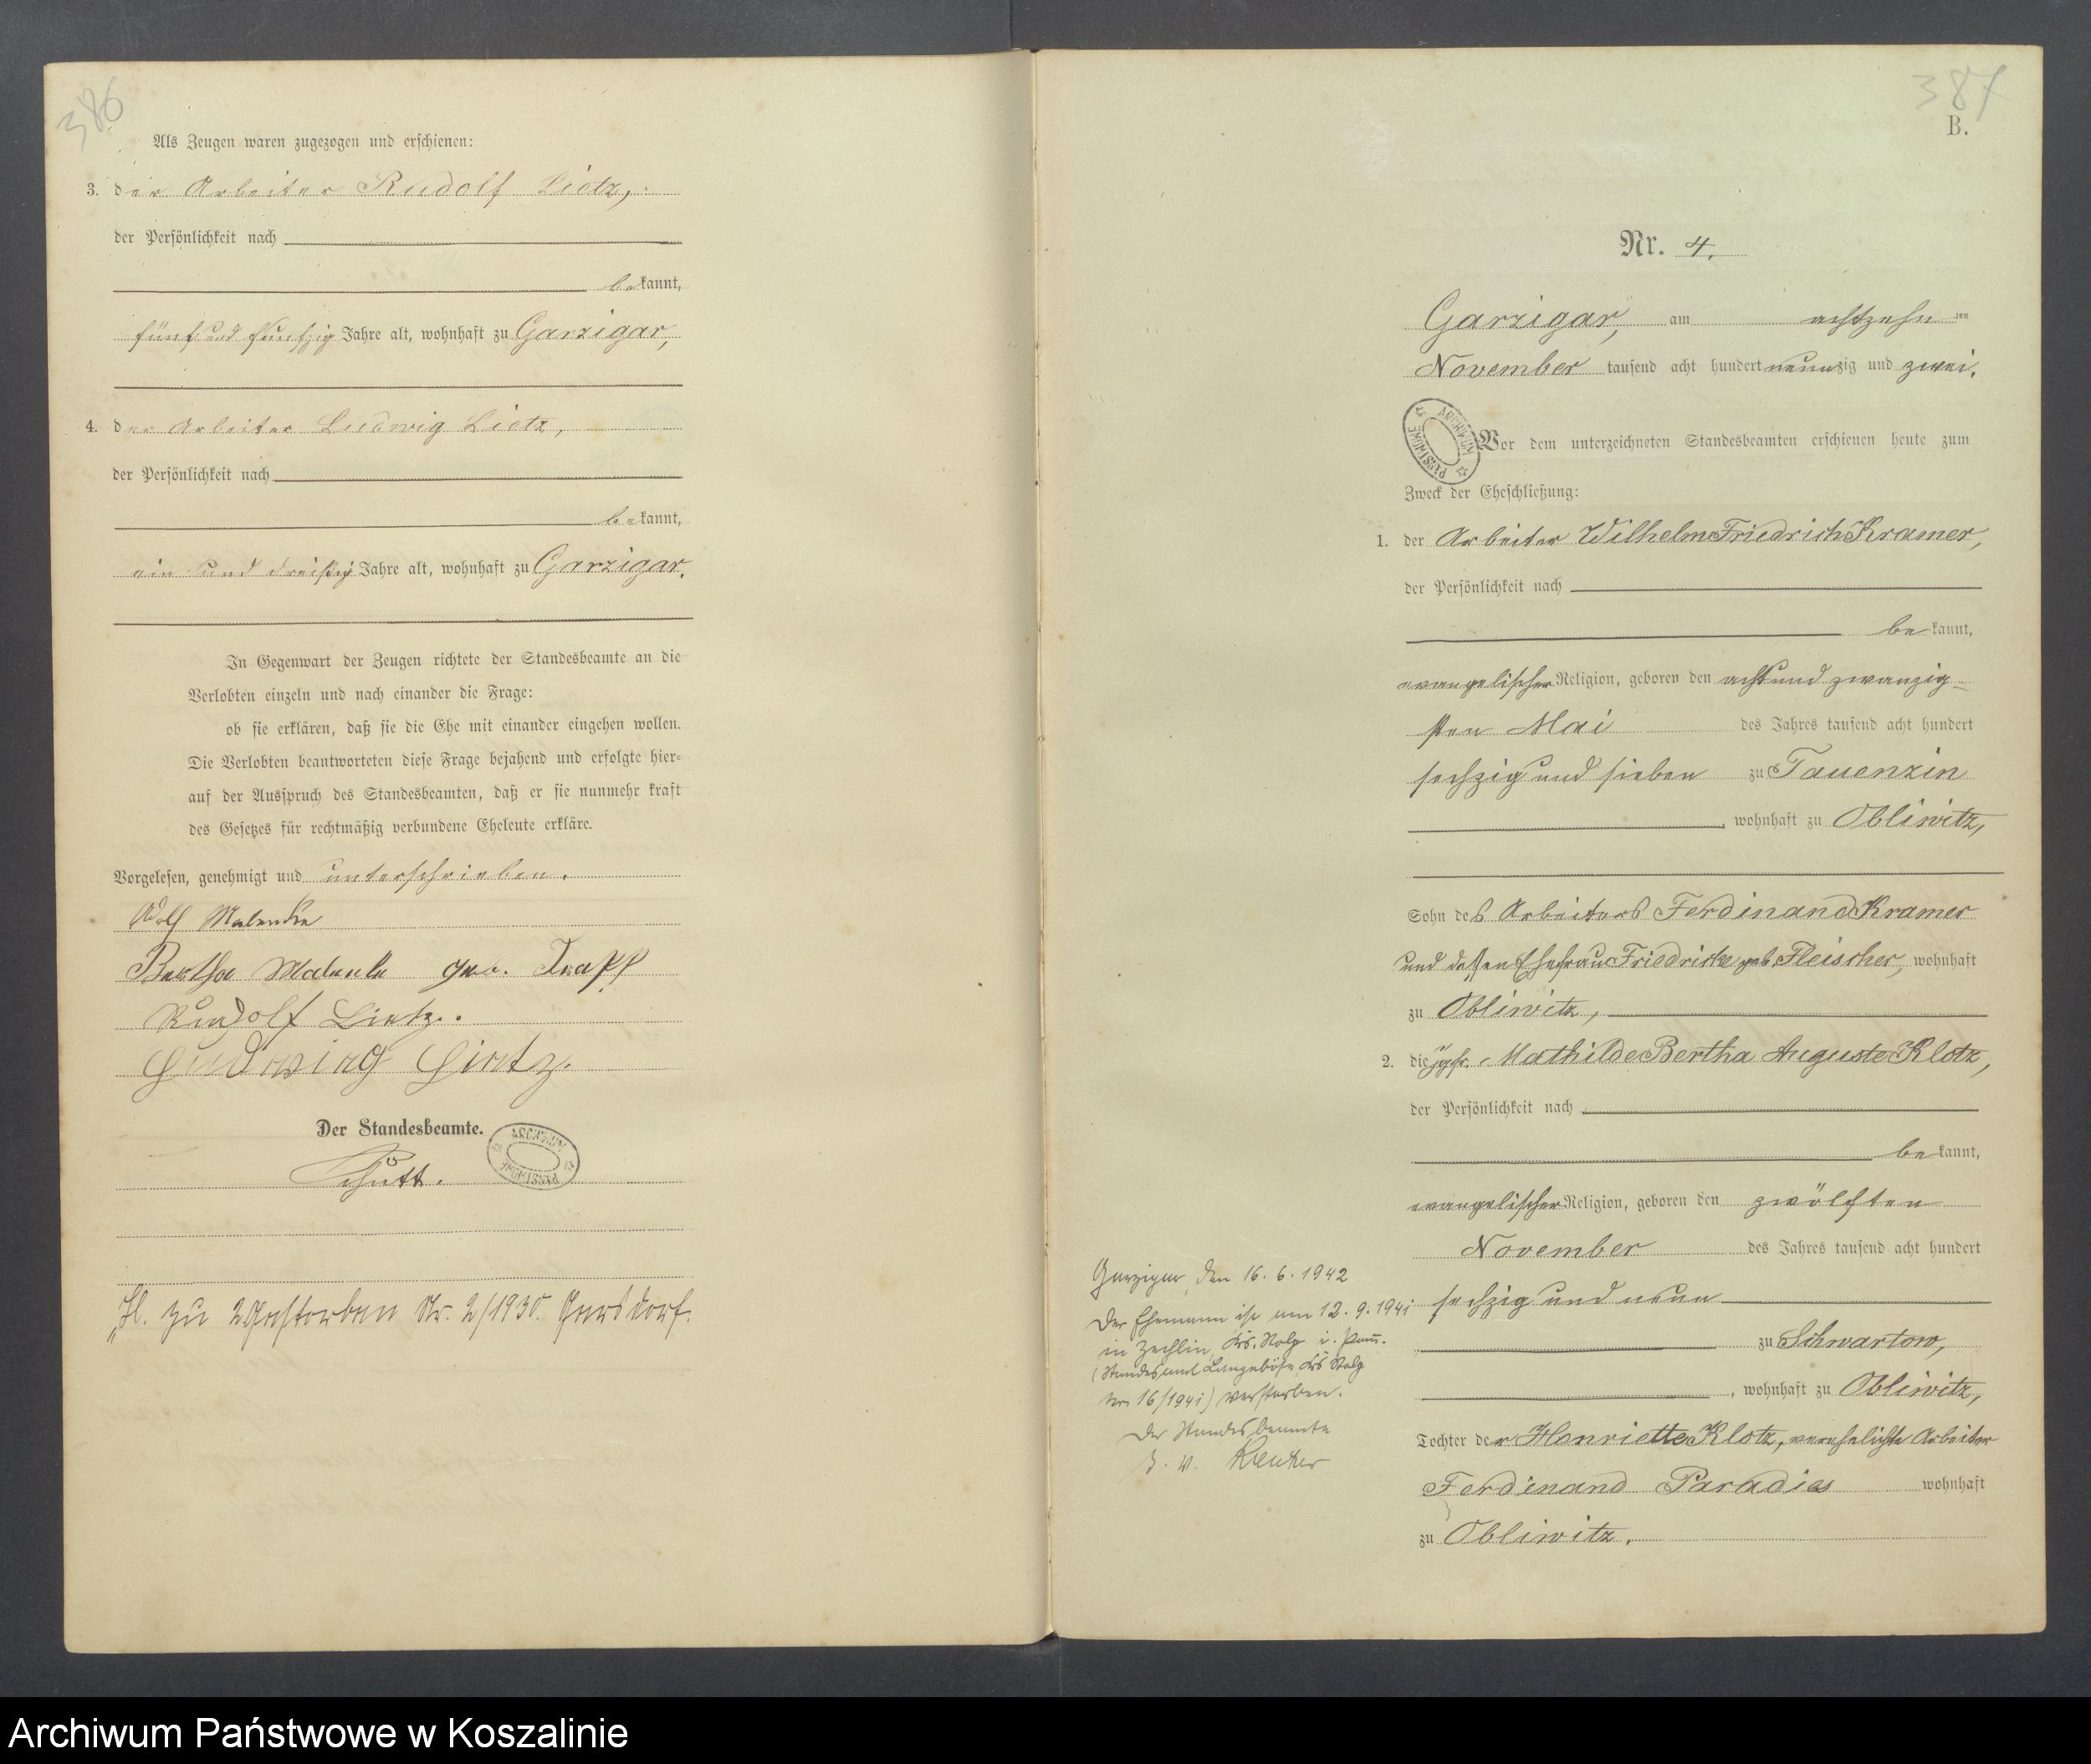 386
Als Zeugen waren zugezogen und erschienen:
3. der Arbeiter Rudolf Lietz,
der Persönlichkeit nach
bekannt,
fünf und funfzig Jahre alt, wohnhaft zu Garzigar,
4. der Arbeiter Ludwig Lietz,
der Persönlichkeit nach
bekannt,
ein und dreißig Jahre alt, wohnhaft zu Garzigar.
In Gegenwart der Zeugen richtete der Standesbeamte an die
Verlobten einzeln und nach einander die Frage:
ob sie erklären, daß sie die Ehe mit einander eingehen wollen.
Die Verlobten beantworteten diese Frage bejahend und erfolgte hier-
auf der Ausspruch des Standesbeamten, daß er sie nunmehr kraft
des Gesetzes für rechtmäßig verbundene Eheleute erkläre.
Vorgelesen, genehmigt und unterschrieben.
Adolf Malenke
Bertha Malenke geb.
Rudolf Lietz.
Ludwig Lietz.
Der Standesbeamte.
zu Gestorben Nr. 2/1930.
387
B.
Nr. 4.
Garzigar, am achtzehn ten
November tausend acht hundert neunzig und zwei.
Vor dem unterzeichneten Standesbeamten erschienen heute zum
Zweck der Eheschließung:
1. der Arbeiter Wilhelm Friedrich Kramer,
der Persönlichkeit nach
bekannt,
evangelischer Religion, geboren den acht und zwanzig-
sten Mai des Jahres tausend acht hundert
sechzig und sieben zu Tauenzin
, wohnhaft zu Obliwitz,
Sohn des Arbeiters Ferdinand Kramer
und dessen Ehefrau Friedricke geb. Fleischer, wohnhaft
zu Obliwitz,
2. die Jgfr. Mathilde Bertha Auguste Klotz,
der Persönlichkeit nach
bekannt,
evangelischer Religion, geboren den zwölften
November des Jahres tausend acht hundert
sechzig und neun
zu Schwartow,
, wohnhaft zu Obliwitz,
Tochter der Henriette Klotz, verehelichte Arbeiter
Ferdinand Paradies wohnhaft
zu Obliwitz.
Garzigar, den 16. 6. 1942
Der Ehemann ist am 12. 9. 1941
in Zechlin, Krs. Stolp i. Pom.
(Standesamt Langeböse Krs Stolp
Nr. 16/1941) verstorben.
Der Standesbeamte
Archiwum Państwowe w Koszalinie